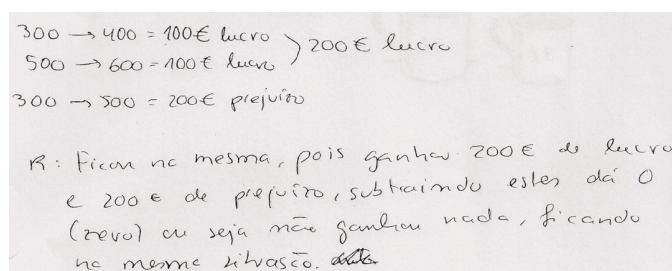 300 → 400 = 100€ lucro
500 → 600 = 100€ lucro
} 200€ lucro
300 → 500 = 200€ prejuízo
R: Ficou na mesma, pois ganhou 200€ de lucro
e 200€ de prejuízo, subtraindo estes dá 0
(zero) ou seja não ganhou nada, ficando
na mesma situação.